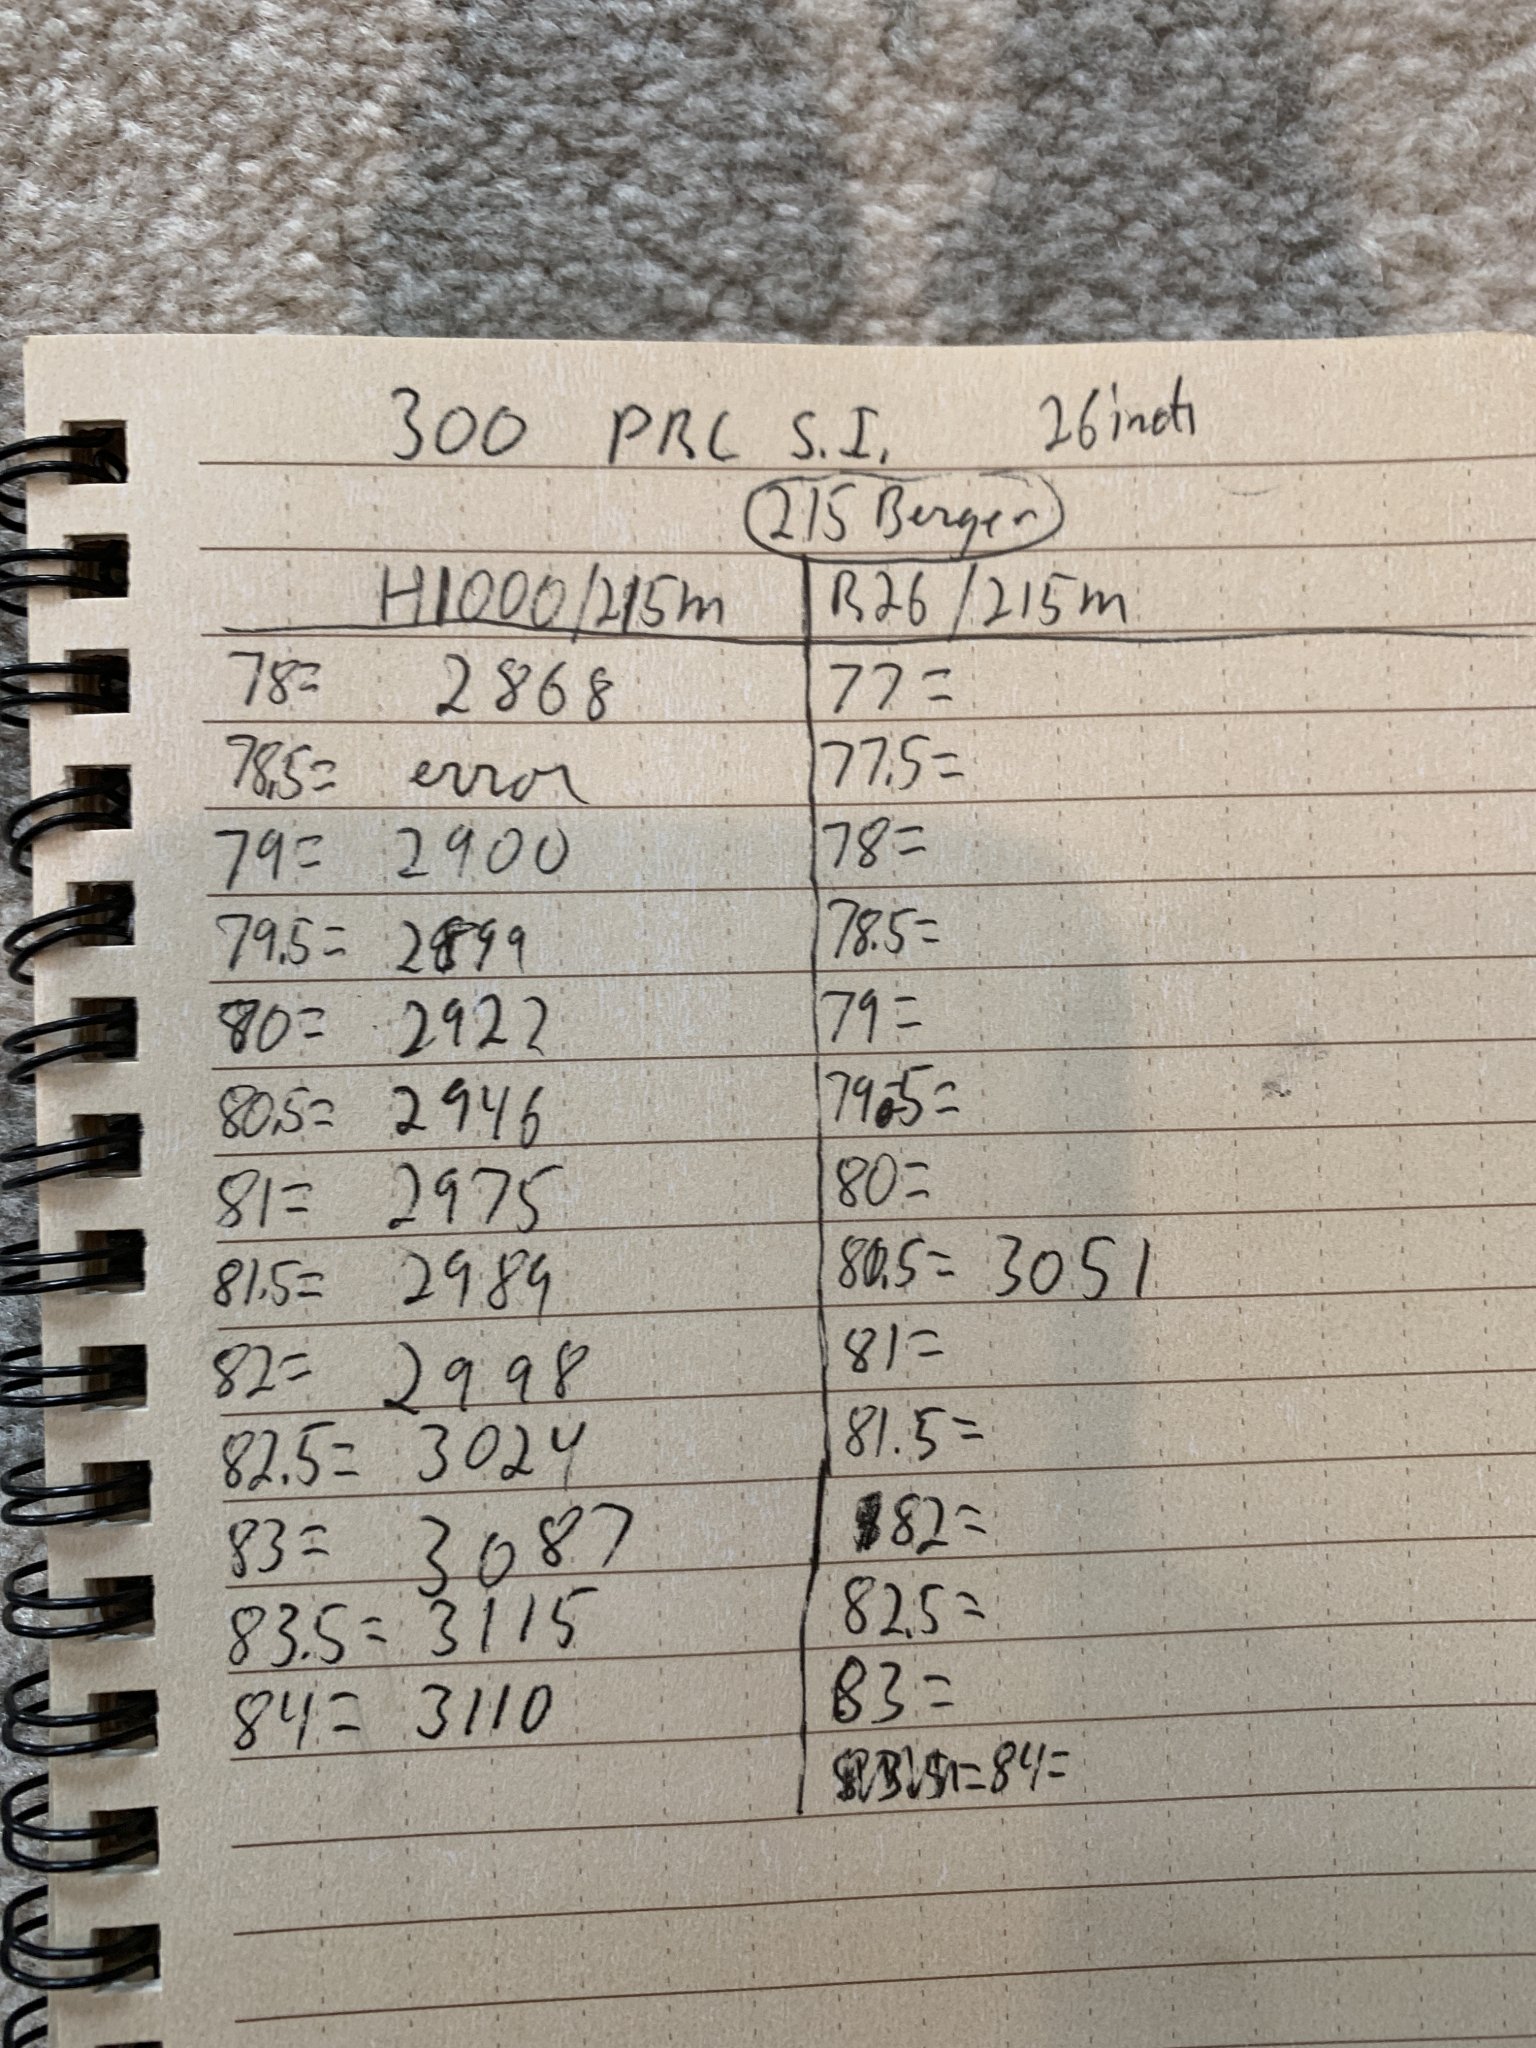 300 PRC S.I. 26 inch
215 Berger
H1000/215m R26/215m
78= 2868 77=
78.5= error 77.5=
79= 2900 78=
79.5= 2899 78.5=
80= 2922 79=
80.5= 2946 79.5=
81= 2975 80=
81.5= 2989 80.5= 3051
82= 2998 81=
82.5= 3024 81.5=
83= 3087 82=
83.5= 3115 82.5=
84= 3110 83=
84=